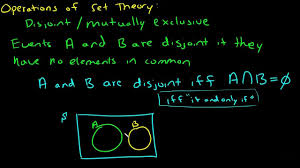 Operations of Set Theory:
Disjoint / mutually exclusive
Events A and B are disjoint if they
have no elements in common
A and B are disjoint iff A∩B=∅
iff "if and only if"
S
A
B